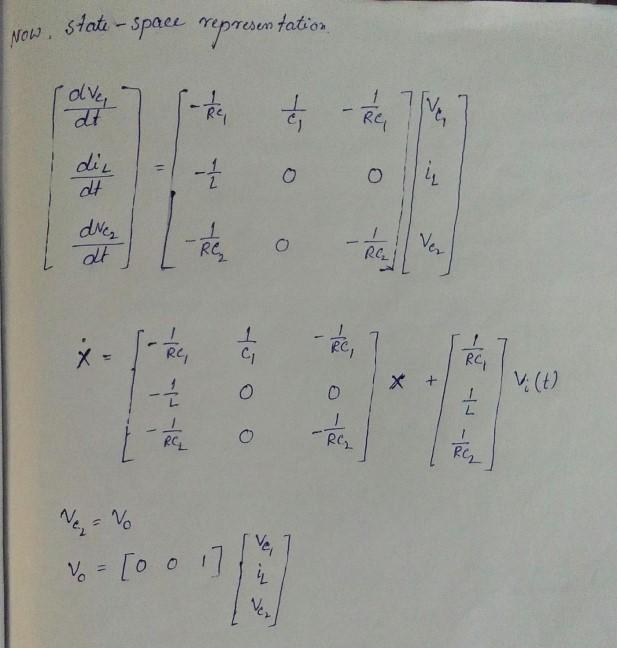 Now, state-space representation.
[dVc₁/dt; diL/dt; dVc₂/dt] = [-1/RC₁ 1/C₁ -1/RC₁; -1/L 0 0; -1/RC₂ 0 -1/RC₂] [Vc₁; iL; Vc₂]
ẋ = [-1/RC₁ 1/C₁ -1/RC₁; -1/L 0 0; -1/RC₂ 0 -1/RC₂] x + [1/RC₁; 1/L; 1/RC₂] Vi(t)
Vc₂ = Vo
Vo = [0 0 1] [Vc₁; iL; Vc₂]